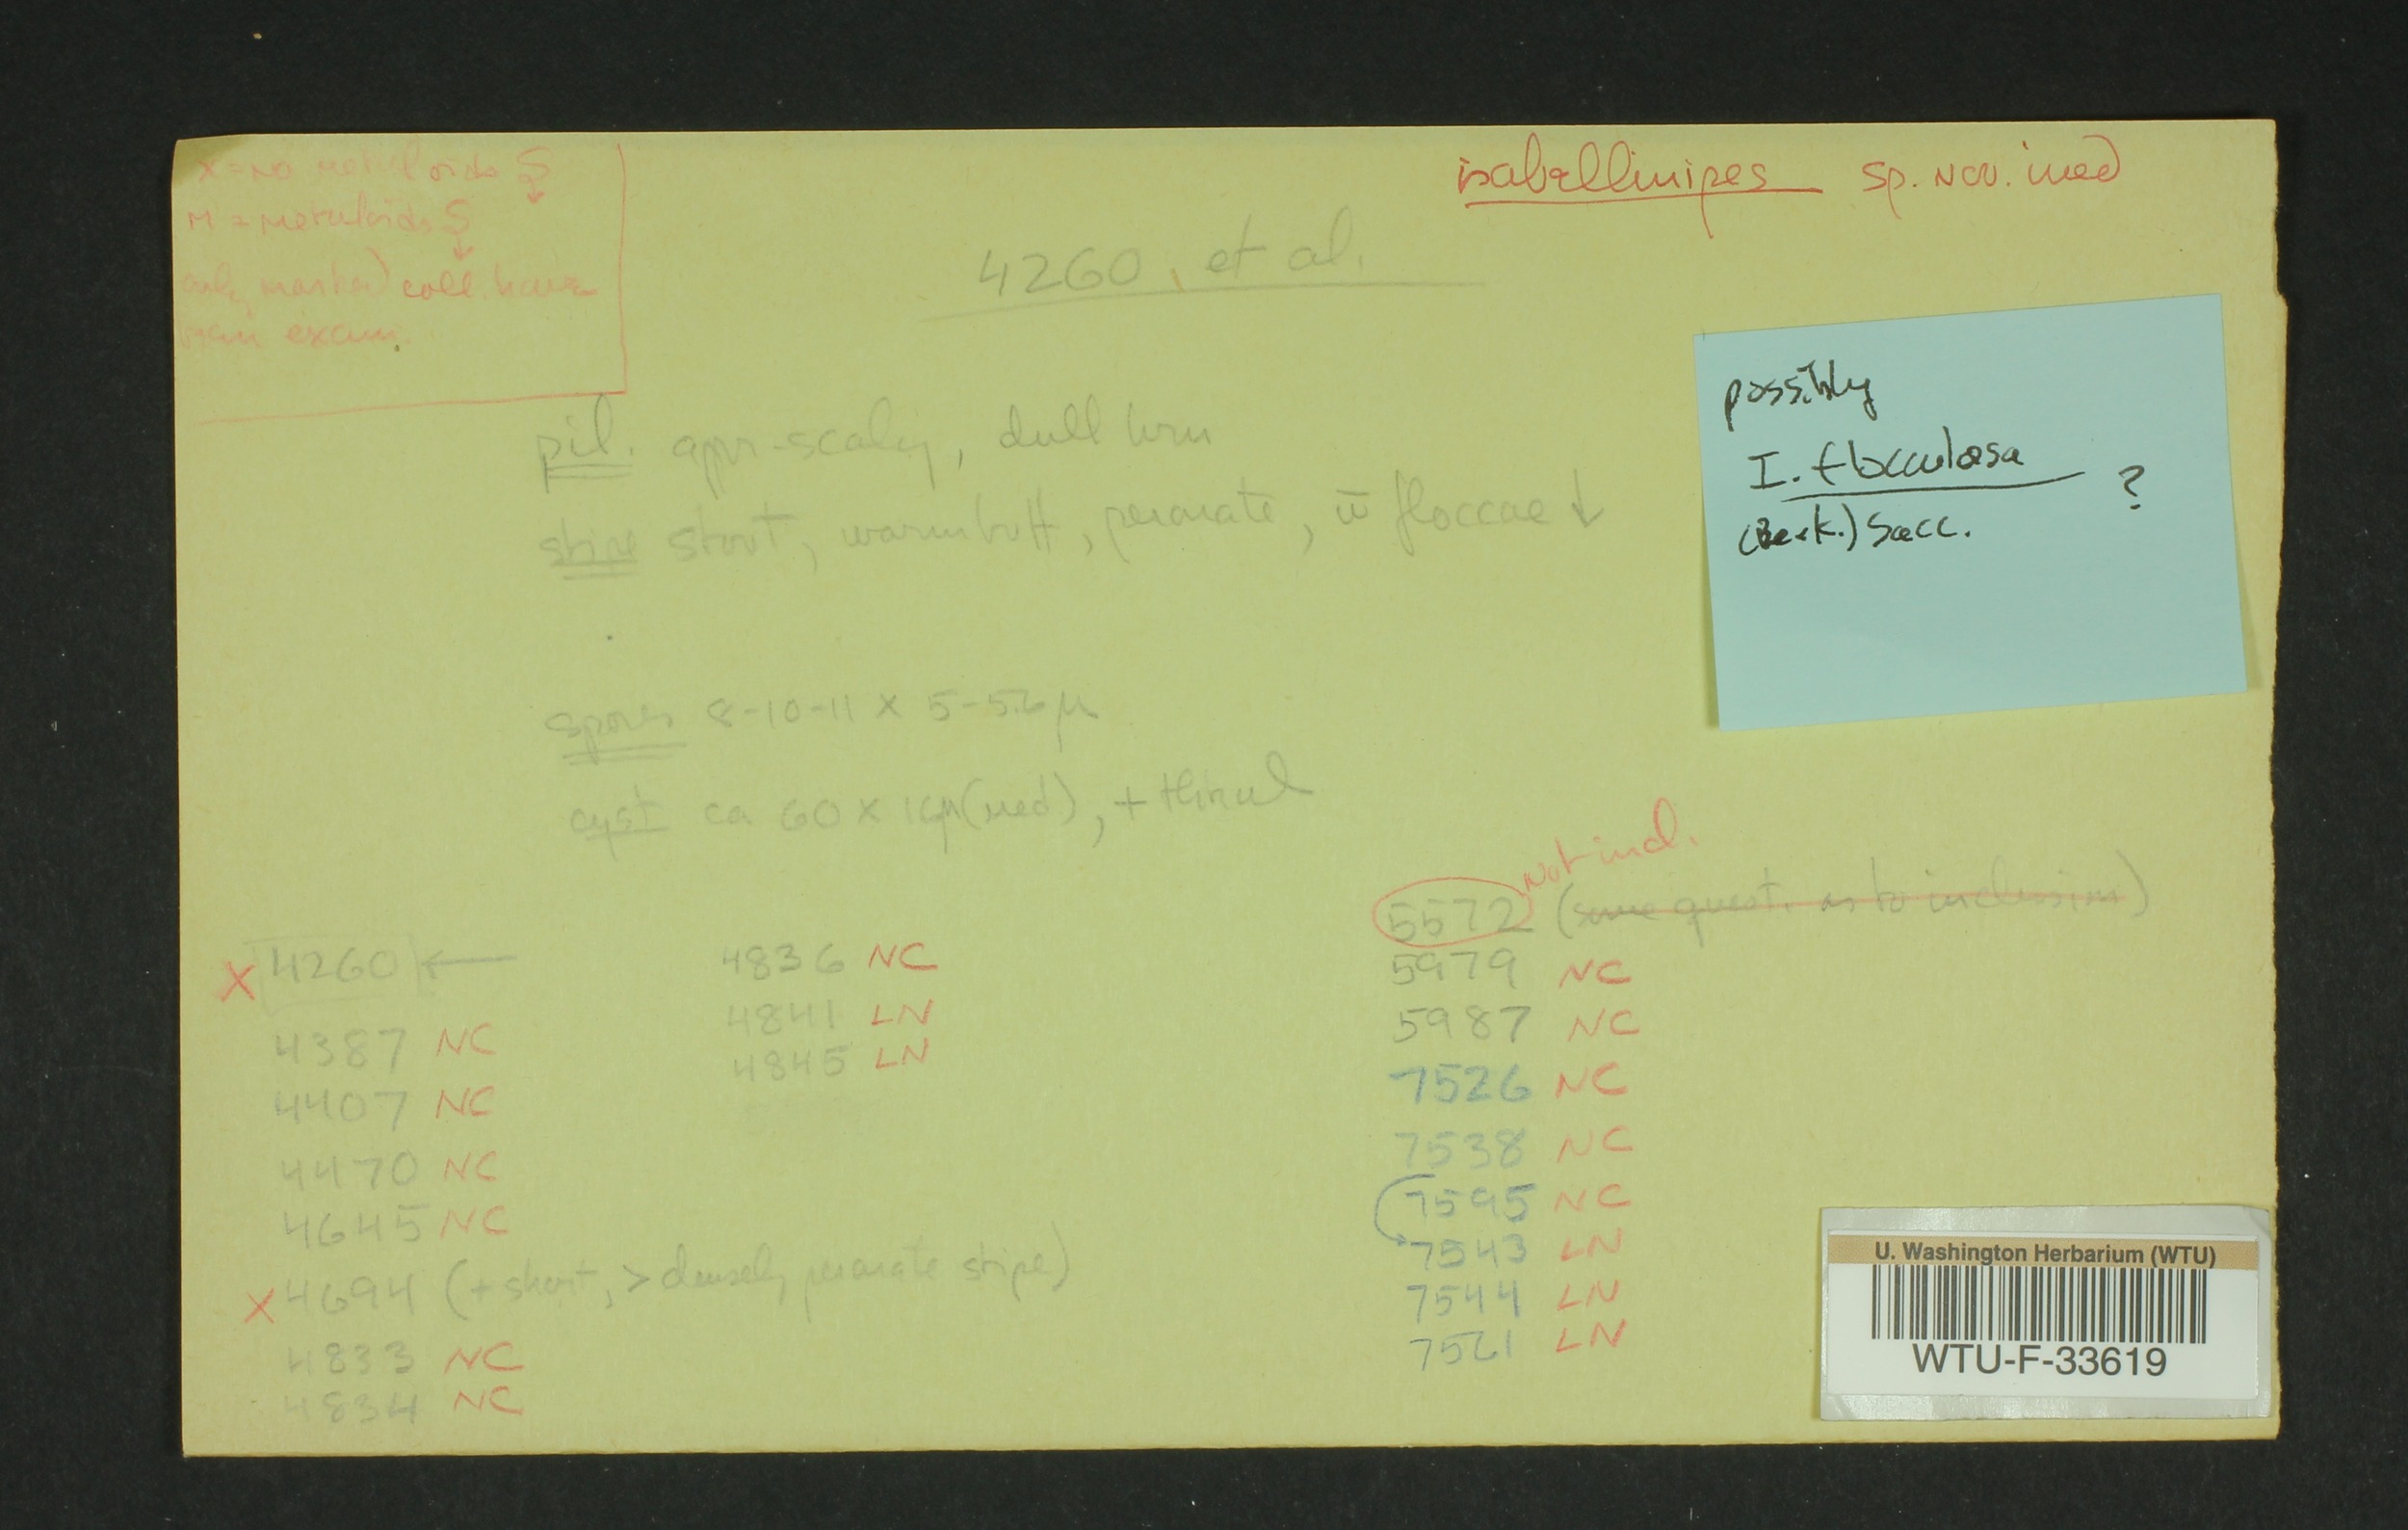 isabellinipes sp. nov. ined
X = no metuloids ♀
M = metuloids ♀
only marked coll. have
been exam.
4260, et al.
possibly
I. flocculosa ?
(Berk.) Sacc.
pil. appr-scaly, dull brn
stipe stout, warm buff, peronate, w̄ floccae ↓
spores 8-10-11 x 5-5.6 μ
cyst ca 60 x 16μ (med), + thinwl
Not incl.
5572 (some quest. as to inclusion)
X 4260 ←
4387 NC
4407 NC
4470 NC
4645 NC
X 4694 (+ short, > densely peronate stipe)
4833 NC
4834 NC
4836 NC
4841 LN
4845 LN
5979 NC
5987 NC
7526 NC
7538 NC
7595 NC
7543 LN
7544 LN
7521 LN
U. Washington Herbarium (WTU)
WTU-F-33619